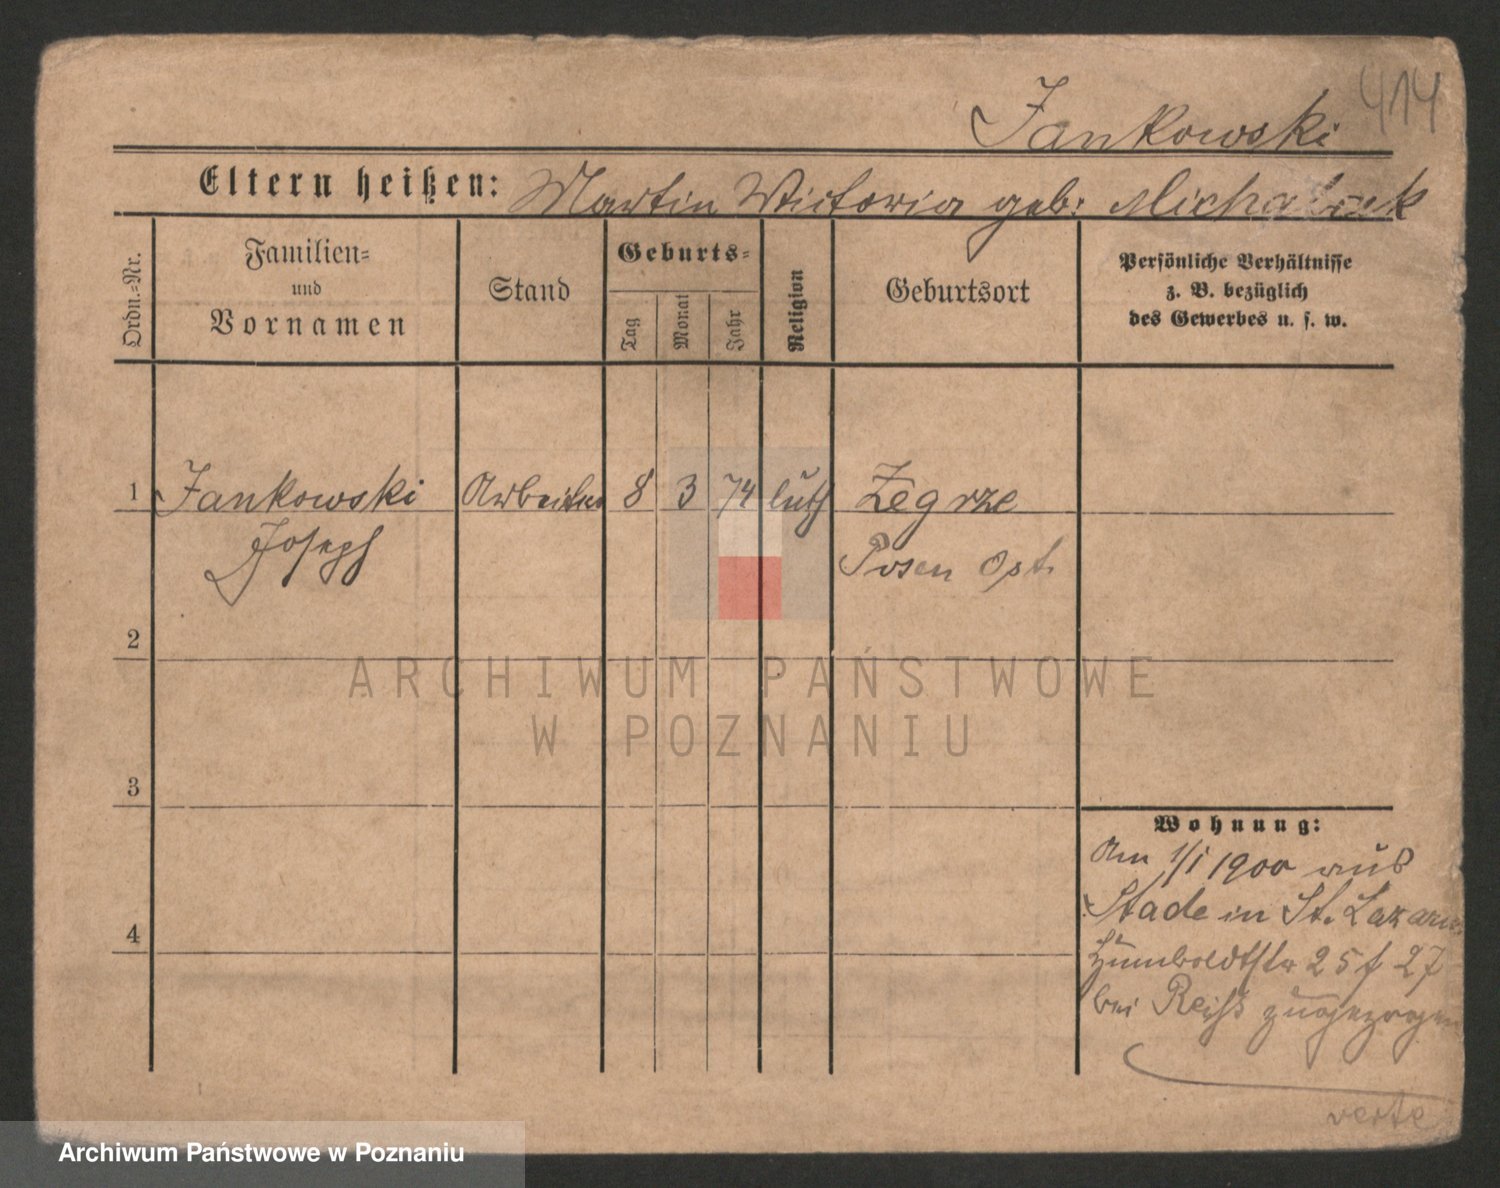 414
Jankowski
Eltern heißen: Martin Victoria geb:
Ordn.-Nr.
Familien-
und
Vornamen
Stand
Geburts-
Tag
Monat
Jahr
Religion
Geburtsort
Persönliche Verhältnisse
z. B. bezüglich
des Gewerbes u. s. w.
1 Jankowski Arbeiter 8 3 74 luth Zegrze
Joseph Posen Ost.
2
3
4
Wohnung:
Am 1/1 1900 aus
Stade in St. Lazarus
Humboldtstr 25 f 27
bei Reiß zugezogen
verte
ARCHIWUM PAŃSTWOWE
W POZNANIU
Archiwum Państwowe w Poznaniu